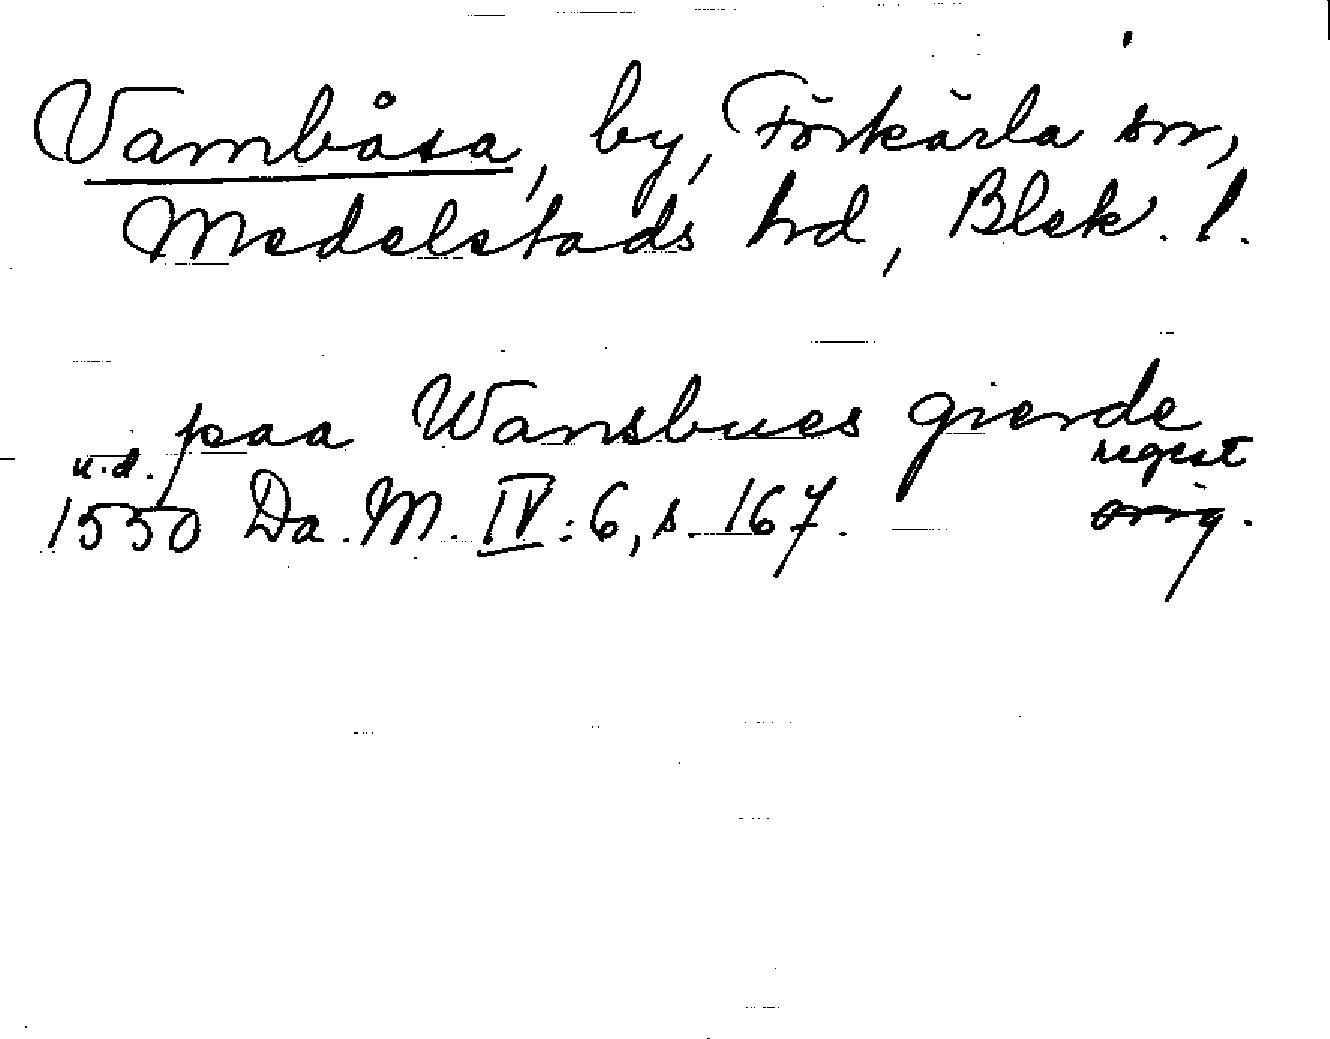 Vambåsa, by, Förkärla sn,
Medelstads hd, Blek. l.
paa Wansbues gierde
u.d. regest
1550 Da. M. IV:6, s. 167. orig.